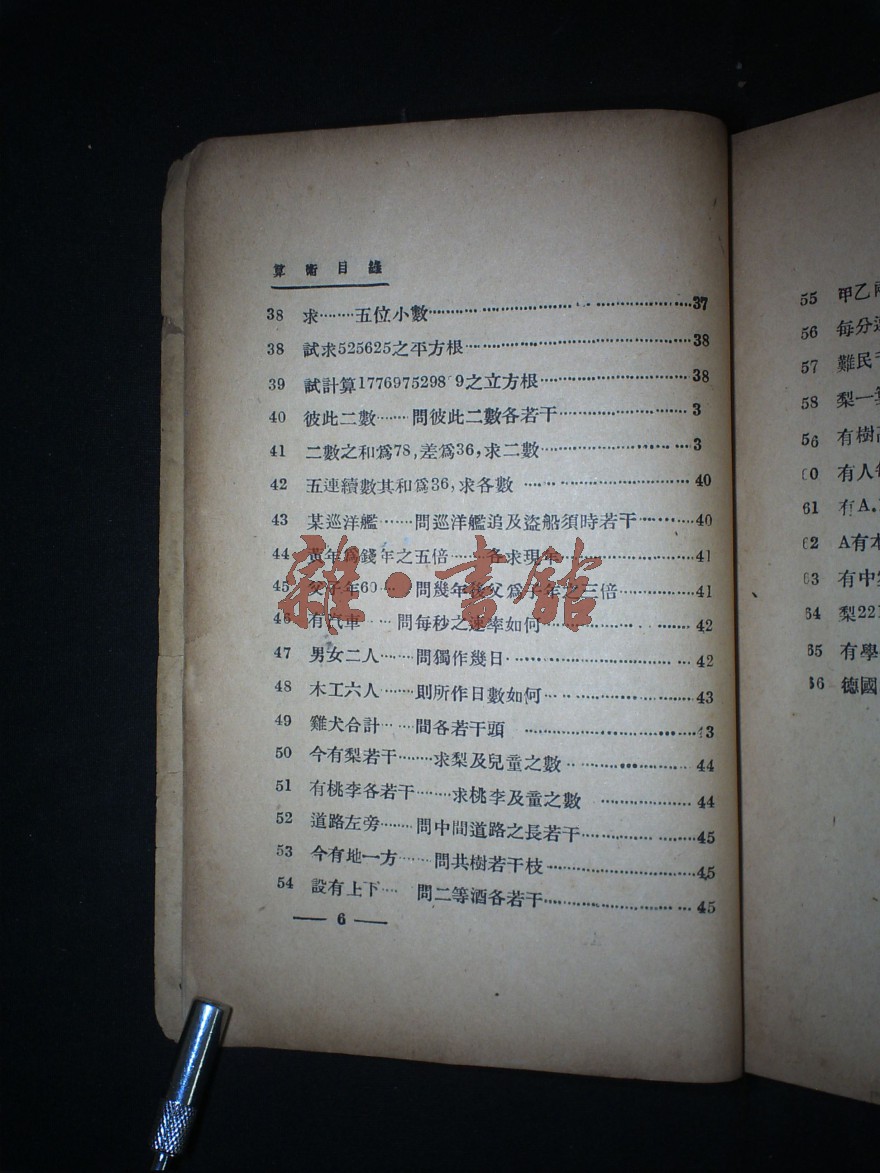 算術目錄
38 求········五位小數·······························37
38 試求525625之平方根·······························38
39 試計算1776975298 9之立方根·······················38
40 彼此二數·······問彼此二數各若干··················3
41 二數之和爲78,差爲36,求二數·····················3
42 五連續數其和爲36,求各數 ·······················40
43 某巡洋艦······問巡洋艦追及盜船須時若干··········40
44 黃年爲錢年之五倍·······各求現年·················41
45 父子年60····問幾年後父爲子年之三倍··············41
46 有汽車 ····問每秒之速率如何·····················42
47 男女二人·······問獨作幾日·······················42
48 木工六人·······則所作日數如何···················43
49 雞犬合計·· ····問各若干頭 ·····················43
50 今有梨若干·······求梨及兒童之數·················44
51 有桃李各若干·······求桃李及童之數 ·············44
52 道路左旁·······問中間道路之長若干···············45
53 今有地一方·······問共樹若干枝···················45
54 設有上下···· 問二等酒各若干·····················45
— 6 —
55 甲乙
56 每分
57 難民
58 梨一
56 有樹
60 有人
61 有A.
62 A有本
63 有中
64 梨221
65 有學
56 德國
雜·書館